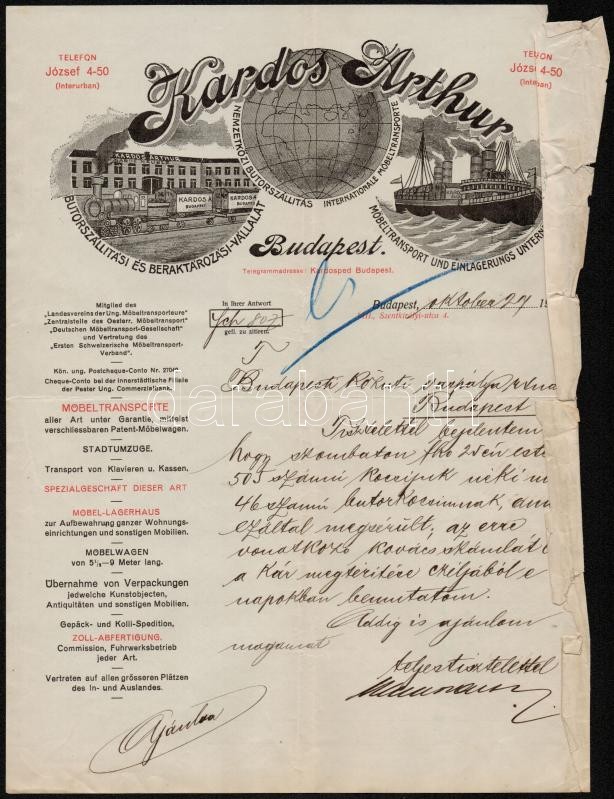 TELEFON
József 4-50
(Interurban)
Kardos Arthur
József 4-50
NEMZETKÖZI BUTORSZÁLLITÁS
INTERNATIONALE MÖBELTRANSPORTE
KARDOS ARTHUR
KARDOS A
BUDAPEST
KARDOS A
BUDAPEST
BUTORSZÁLLITÁSI ÉS BERAKTÁROZÁSI-VÁLLALAT
MÖBELTRANSPORT UND EINLAGERUNGS UNTERN
Budapest.
Telegrammadresse: Kardosped Budapest.
Mitglied des
"Landesvereins der Ung. Möbeltransporteure"
"Zentralstelle des Oesterr. Möbeltransport"
"Deutschen Möbeltransport-Gesellschaft"
und Vertretung des
"Ersten Schweizerische Möbeltransport-
Verband".
Kön. ung. Postcheque-Conto Nr.
Cheque-Conto bei der Innerstädtische Filiale
der Pester Ung. Commerzialbank.
MÖBELTRANSPORTE
aller Art unter Garantie, mittelst
verschliessbaren Patent-Möbelwagen.
STADTUMZÜGE.
Transport von Klavieren u. Kassen.
SPEZIALGESCHÄFT DIESER ART
MÖBEL-LAGERHAUS
zur Aufbewahrung ganzer Wohnungs-
einrichtungen und sonstigen Mobilien.
MÖBELWAGEN
von 5½—9 Meter lang.
Übernahme von Verpackungen
jedwelche Kunstobjecten,
Antiquitäten und sonstigen Mobilien.
Gepäck- und Kolli-Spedition,
ZOLL-ABFERTIGUNG.
Commission, Fuhrwerksbetrieb
jeder Art.
Vertreten auf allen grösseren Plätzen
des In- und Auslandes.
In Ihrer Antwort
gefl. zu zitieren.
Budapest, oktober 27 19
VIII., Szentkirályi-utca 4.
T
Budapesti Közúti vaspálya
Budapest
Tisztelettel bejelentem
hogy szombaton este
505 számú kocsijuk neki
46 számú butorkocsimnak,
ezáltal megsérült, az erre
vonatkozó kovács számlát
a kár megtéritése czéljából e
napokban bemutatom.
Addig is ajánlom
magamat
teljes tisztelettel
Ajánlva
darabanth